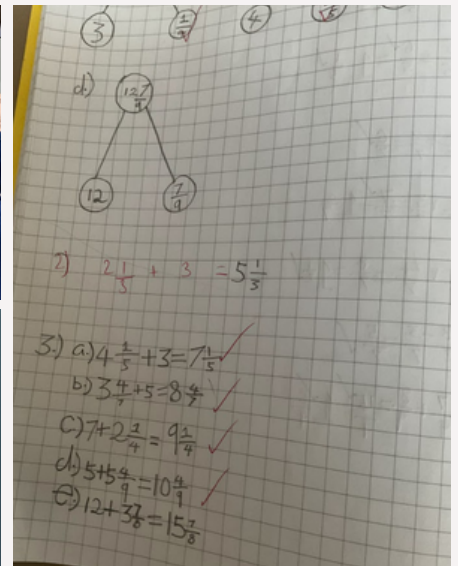 3 4
d.) 12 7/9
12 7/9
2) 2 1/3 + 3 = 5 1/3
3.) a.) 4 1/5 + 3 = 7 1/5
b.) 3 4/7 + 5 = 8 4/7
c.) 7 + 2 1/4 = 9 1/4
d.) 5 + 5 4/9 = 10 4/9
e.) 12 + 3 7/8 = 15 7/8